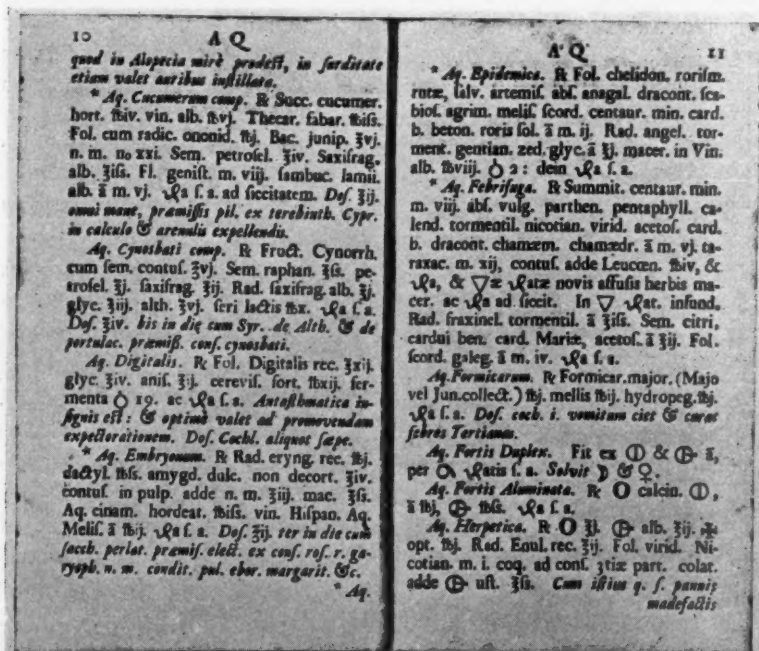 10 A Q
quod in Alopecia mirè prodeſt, in ſurditate
etiam valet auribus inſtillata.
* Aq. Cucumerum comp. ℞ Succ. cucumer.
hort. ℔iv. vin. alb. ℔vj. Thecar. fabar. ℔iſs.
Fol. cum radic. ononid. ℔j. Bac. junip. ℥vj.
n. m. no xxi. Sem. petroſel. ℥iv. Saxifrag.
alb. ℥iſs. Fl. geniſt. m. viij. ſambuc. lamii.
alb. ā m. vj. ſ. a. ad ſiccitatem. Doſ. ℥ij.
omni mane, præmiſſis pil. ex terebinth. Cypr.
in calculo & arenulis expellendis.
Aq. Cynosbati comp. ℞ Fruct. Cynorrh.
cum ſem. contuſ. ℥vj. Sem. raphan. ℥ſs. pe-
troſel. ℥j. ſaxifrag. ℥ij. Rad. ſaxifrag. alb. ℥j.
glyc. ℥iij. alth. ℥vj. ſeri lactis ℔x. ſ. a.
Doſ. ℥iv. bis in die cum Syr. de Alth. & de
portulac. præmiſſ. conſ. cynosbati.
Aq. Digitalis. ℞ Fol. Digitalis rec. ℥xij.
glyc. ℥iv. aniſ. ℥ij. cereviſ. fort. ℔xij. fer-
menta 19. ac ſ. a. Antaſthmatica in-
ſignis eſt: & optimè valet ad promovendam
expectorationem. Doſ. Cochl. aliquot ſæpe.
* Aq. Embryonum. ℞ Rad. eryng. rec. ℔j.
dactyl. ℔ſs. amygd. dulc. non decort. ℥iv.
contuſ. in pulp. adde n. m. ℥iij. mac. ℥ſs.
Aq. cinam. hordeat. ℔iſs. vin. Hiſpan. Aq.
Meliſ. ā ℔ij. ſ. a. Doſ. ℥ij. ter in die cum
ſacch. perlat. præmiſ. elect. ex conſ. roſ. r. ga-
ryoph. n. m. condit. pul. ebor. margarit. &c.
* Aq.
A Q 11
* Aq. Epidemica. ℞ Fol. chelidon. roriſm.
rutæ, ſalv. artemiſ. abſ. anagal. dracont. ſca-
bioſ. agrim. meliſ. ſcord. centaur. min. card.
b. beton. roris ſol. ā m. ij. Rad. angel. tor-
ment. gentian. zed. glyc. ā ℥j. macer. in Vin.
alb. ℔viij. 2: dein ſ. a.
* Aq. Febrifuga. ℞ Summit. centaur. min.
m. viij. abſ. vulg. parthen. pentaphyll. ca-
lend. tormentil. nicotian. virid. acetoſ. card.
b. dracont. chamæm. chamædr. ā m. vj. ta-
raxac. m. xij, contuſ. adde Leucœn. ℔iv, &
a, & 🜄æ atæ novis affuſis herbis ma-
cer. ac a ad ſiccit. In 🜄 at. infund.
Rad. fraxinel. tormentil. ā ℥iſs. Sem. citri,
cardui ben. card. Mariæ, acetoſ. ā ℥ij. Fol.
ſcord. galeg. ā m. iv. ſ. a.
Aq. Formicarum. ℞ Formicar. major. (Majo
vel Jun. collect.) ℔j. mellis ℔ij. hydropeg. ℔j.
ſ. a. Doſ. coch. i. vomitum ciet & curat
febres Tertianas.
Aq. Fortis Duplex. Fit ex 🜕 & 🜖 ā,
per atis ſ. a. Solvit ☽ & ♀.
Aq. Fortis Aluminata. ℞ calcin. 🜕,
ā ℔j, 🜖 ℔ſs. ſ. a.
Aq. Herpetica. ℞ ℥j. 🜖 alb. ℥ij.
opt. ℔j. Rad. Enul. rec. ℥ij. Fol. virid. Ni-
cotian. m. i. coq. ad conſ. part. colat.
adde 🜖 uſt. ℥ſs. Cum iſtius q. ſ. pannis
madefactis